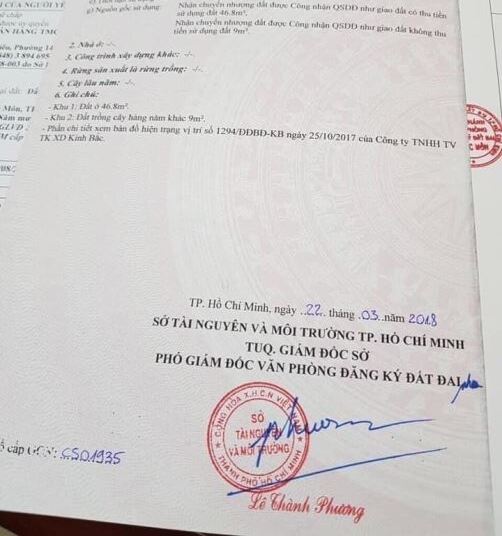 g) Nguồn gốc sử dụng:
Nhận chuyển nhượng đất được Công nhận QSDĐ như giao đất có thu tiền
sử dụng đất 46.8m².
Nhận chuyển nhượng đất được Công nhận QSDĐ như giao đất không thu
tiền sử dụng đất 9m².
2. Nhà ở: -/-.
3. Công trình xây dựng khác: -/-.
4. Rừng sản xuất là rừng trồng: -/-.
5. Cây lâu năm: -/-.
6. Ghi chú:
- Khu 1: Đất ở 46.8m².
- Khu 2: Đất trồng cây hàng năm khác 9m².
- Phần chi tiết xem bản đồ hiện trạng vị trí số 1294/ĐĐBD-KB ngày 25/10/2017 của Công ty TNHH TV
TK XD Kinh Bắc.
TP. Hồ Chí Minh, ngày 22 tháng 03 năm 2018
SỞ TÀI NGUYÊN VÀ MÔI TRƯỜNG TP. HỒ CHÍ MINH
TUQ. GIÁM ĐỐC SỞ
PHÓ GIÁM ĐỐC VĂN PHÒNG ĐĂNG KÝ ĐẤT ĐAI
CỘNG HÒA X.H.C.N VIỆT NAM
SỞ
TÀI NGUYÊN
VÀ MÔI TRƯỜNG
THÀNH PHỐ HỒ CHÍ MINH
cấp GCN: CS01935
Lê Thành Phương
CỦA NGƯỜI
chấp
Phường 14